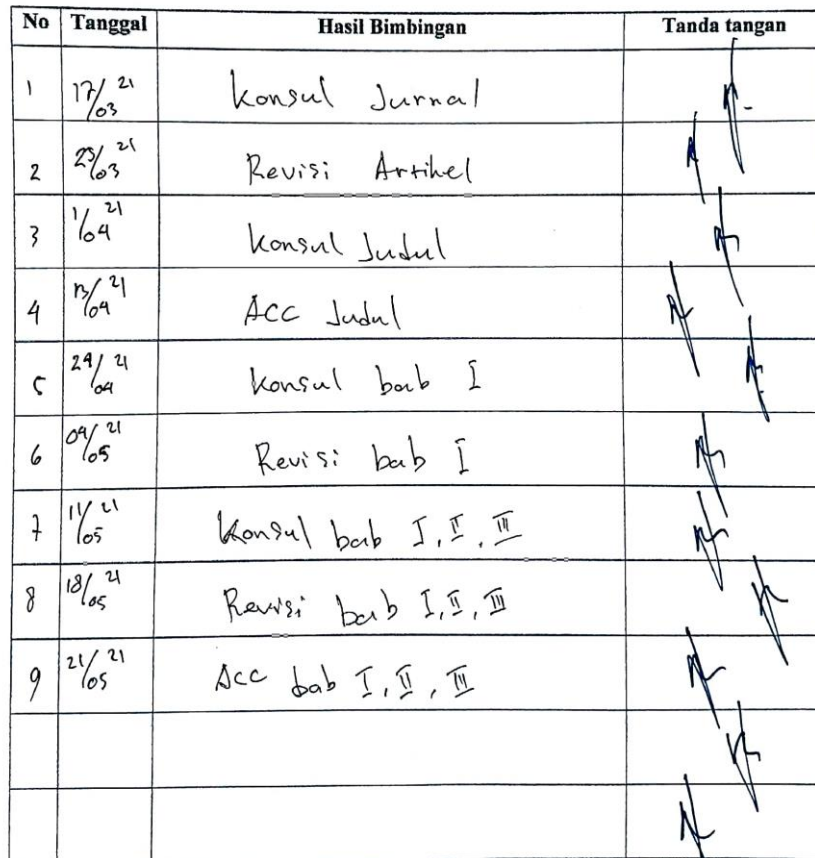 No Tanggal Hasil Bimbingan Tanda tangan
1 17/03 21 Konsul Jurnal
2 25/03 21 Revisi Artikel
3 1/04 21 Konsul Judul
4 13/04 21 ACC Judul
5 29/04 21 Konsul bab I
6 04/05 21 Revisi bab I
7 11/05 21 Konsul bab I, II, III
8 18/05 21 Revisi bab I, II, III
9 21/05 21 Acc bab I, II, III